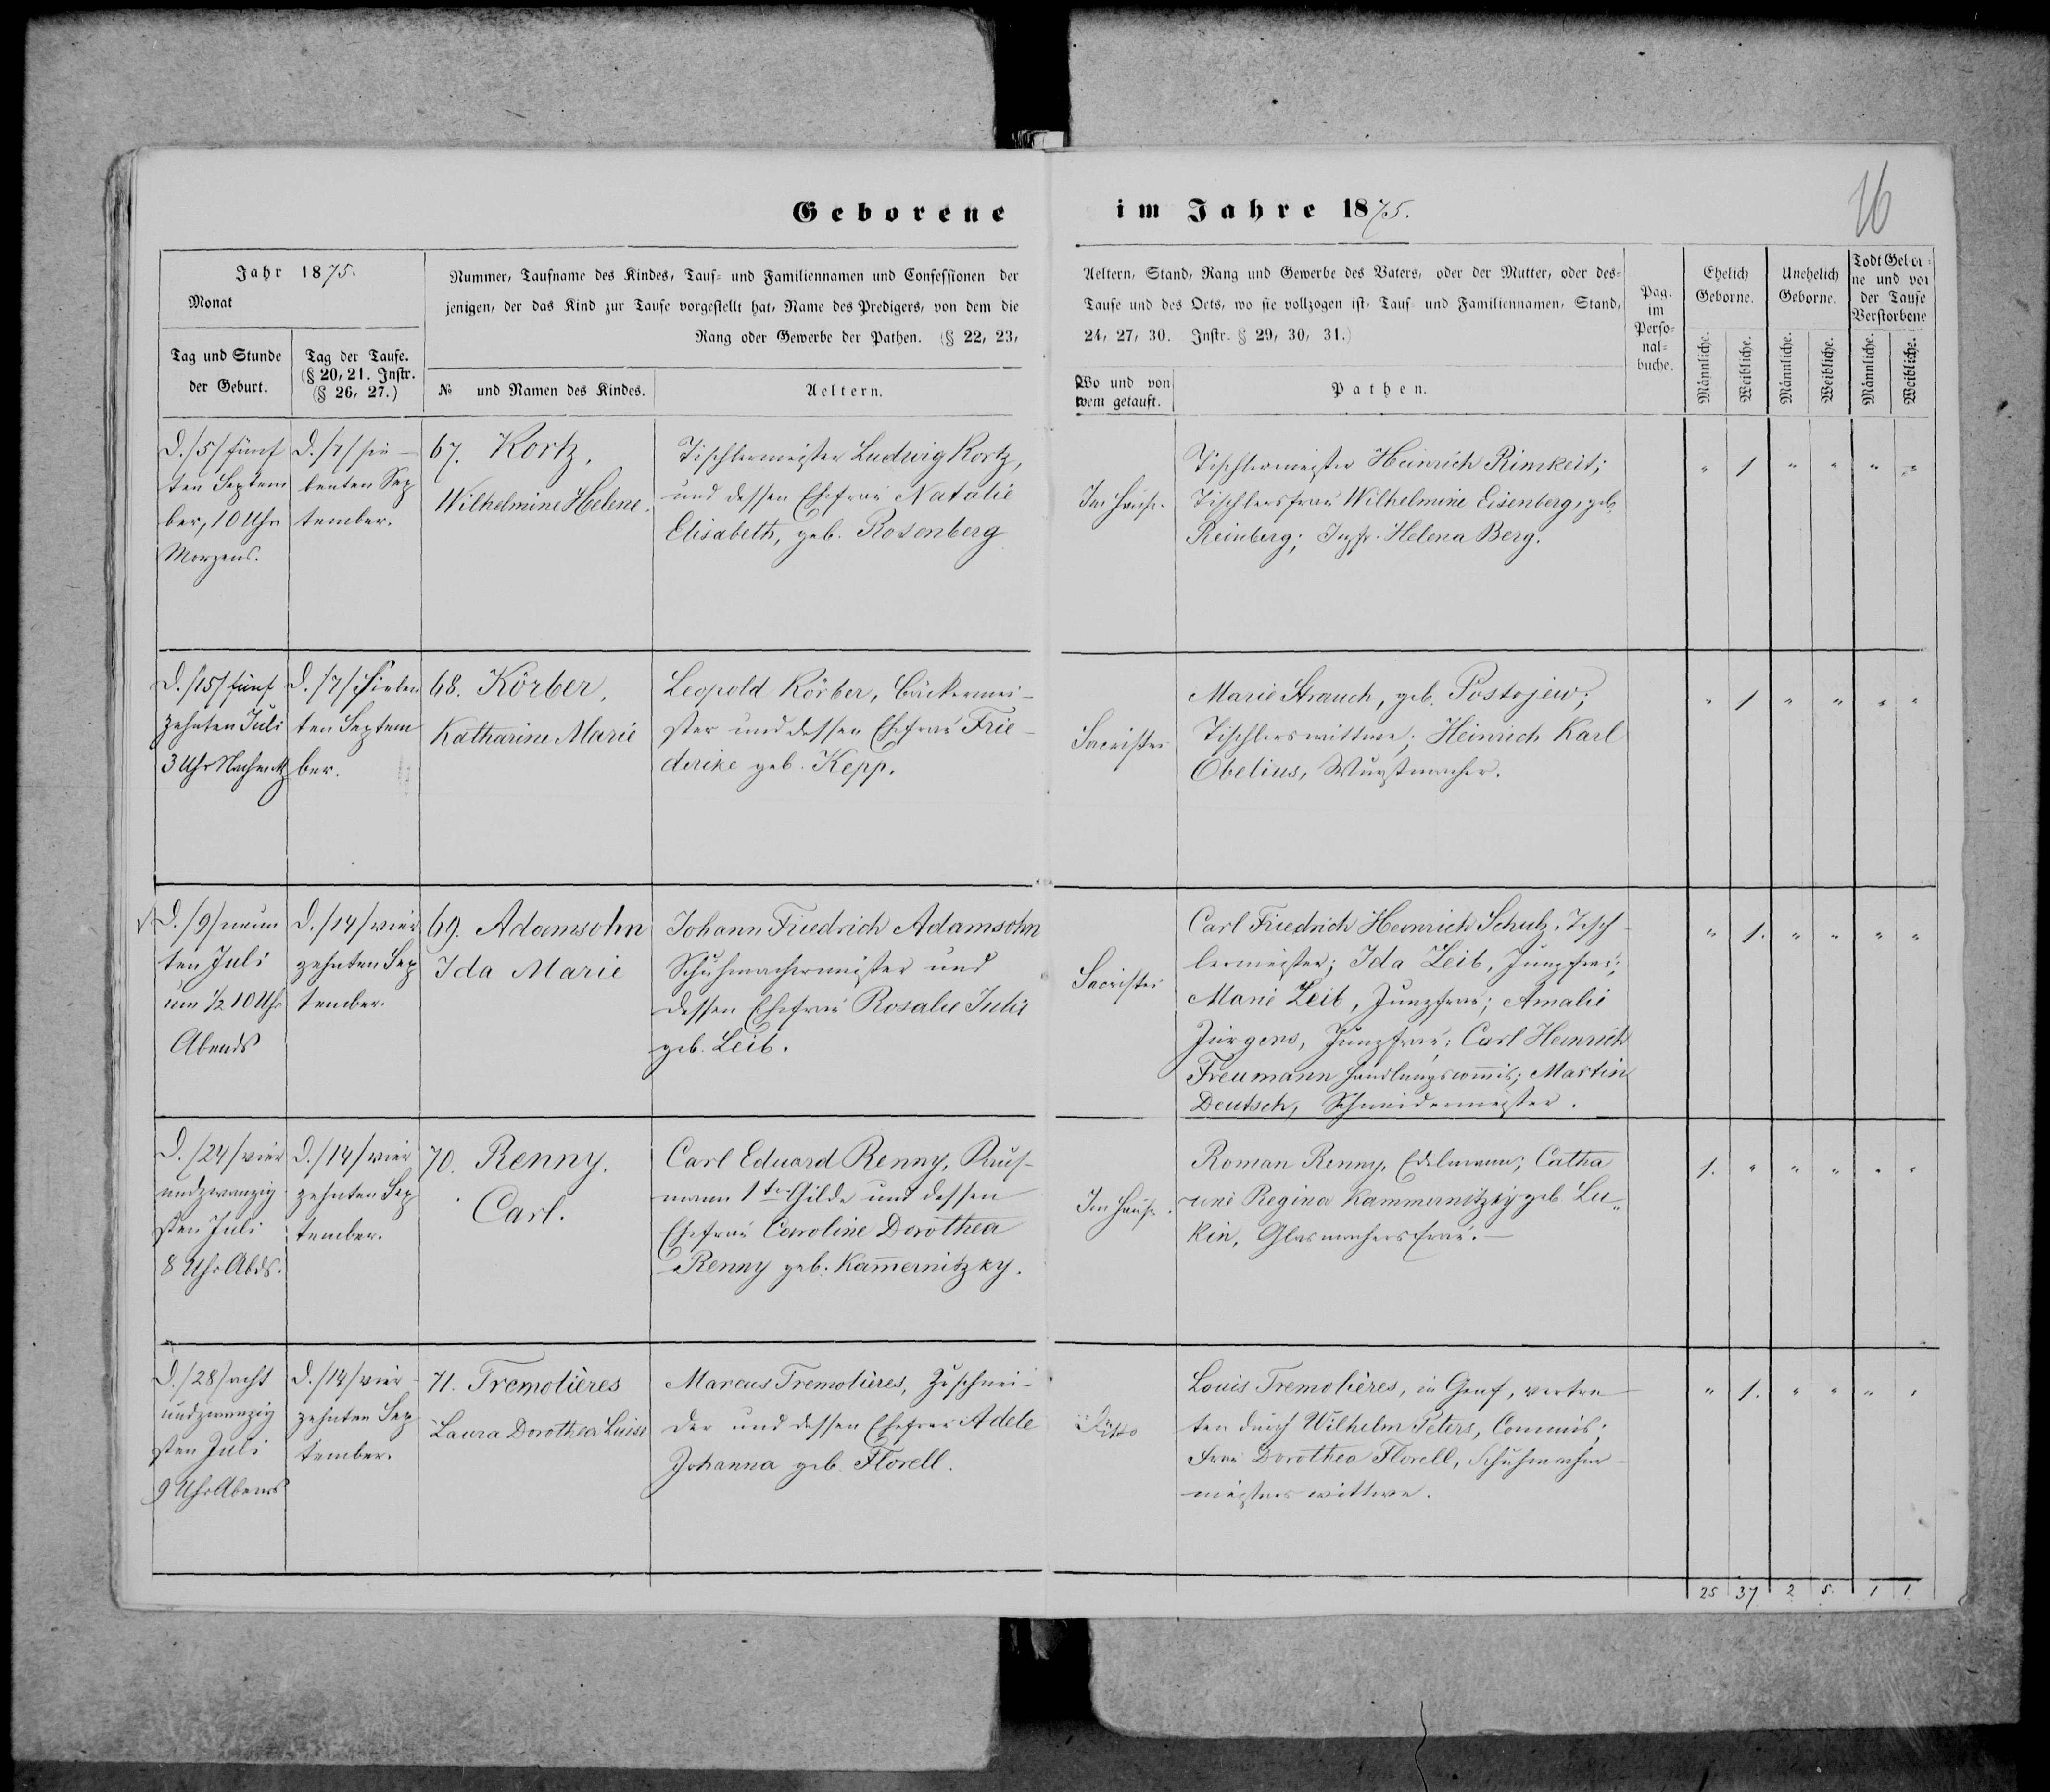 16
Geborene im Jahre 1875.
Jahr 1875.
Monat
Tag und Stunde
der Geburt.
Tag der Taufe.
(§ 20, 21. Instr.
(§ 26, 27.)
Nummer, Taufname des Kindes, Tauf- und Familiennamen und Confessionen der
jenigen, der das Kind zur Taufe vorgestellt hat, Name des Predigers, von dem die
Rang oder Gewerbe der Pathen. (§ 22, 23,
№ und Namen des Kindes.
Aeltern.
Aeltern, Stand, Rang und Gewerbe des Vaters, oder der Mutter, oder des-
Taufe und des Orts, wo sie vollzogen ist, Tauf- und Familiennamen, Stand,
24, 27, 30. Instr. § 29, 30, 31.)
Wo und von
wem getauft.
Pathen.
Pag.
im
Perso-
nal-
buche.
Ehelich
Geborne.
Unehelich
Geborne.
Todt Gebor-
ne und vor
der Taufe
Verstorbene
Männliche.
Weibliche.
Männliche.
Weibliche.
Männliche.
Weibliche.
D. /5/ fünf
ten Septem
ber, 10 Uhr
Morgens.
D. /7/ sie-
benten Sep
tember.
67. Kortz,
Wilhelmine Helene.
Tischlermeister Ludwig Kortz,
und dessen Ehefrau Natalie
Elisabeth, geb. Rosenberg
Im Hause.
Tischlermeister Heinrich Rimkeit;
Tischlersfrau Wilhelmine Eisenberg, geb.
Reinberg; Jgfr. Helena Berg.
" 1 " " " "
D. /15/ fünf
zehnten Juli
3 Uhr Nachmitt
D. /7/ sieben
ten Septem
ber.
68. Körber,
Katharine Marie
Leopold Körber, Bäckermei-
ster und dessen Ehefrau Frie-
derike geb. Kepp.
Sacristei
Marie Strauch, geb. Postojew,
Tischlerswittwe; Heinrich Karl
Obelius, Wurstmacher.
" 1 " " " "
D. /9/ neun
ten Juli
um 1/2 10 Uhr
Abends
D. /14/ vier
zehnten Sep
tember.
69. Adamsohn
Ida Marie
Johann Friedrich Adamsohn
Schuhmachermeister und
dessen Ehefrau Rosalie Julie
geb. Leib.
Sacristei
Carl Friedrich Heinrich Schulz, Tisch-
lermeister; Ida Leib, Jungfrau;
Marie Leib, Jungfrau; Amalie
Jürgens, Jungfrau; Carl Heinrich
Freumann Handlungscommis; Martin
Deutsch, Schneidermeister.
" 1. " " " "
D. /24/ vier
undzwanzig
sten Juli
8 Uhr Abds.
D. /14/ vier
zehnten Sep
tember.
70. Renny.
Carl.
Carl Eduard Renny, Kauf-
mann 1ter Gilde und dessen
Ehefrau Caroline Dorothea
Renny geb. Kam̅ernitzky.
Im Hause.
Roman Renny, Edelmann; Catha
rine Regina Kammernitzky geb. Lu-
kin, Glasmachersfrau.—
1. " " " " "
D. /28/ acht
undzwanzig
sten Juli
9 Uhr Abends
D. /14/ vier-
zehnten Sep
tember.
71. Tremolières
Laura Dorothea Luise
Marcus Tremolières, Zuschnei-
der und dessen Ehefrau Adele
Johanna geb. Florell.
Ditto
Louis Tremolières, in Genf, vertre
ten durch Wilhelm Peters, Commis;
Frau Dorothea Florell, Schuhmacher-
meisterswittwe.
" 1. " " " "
25 37 2 5. 1 1